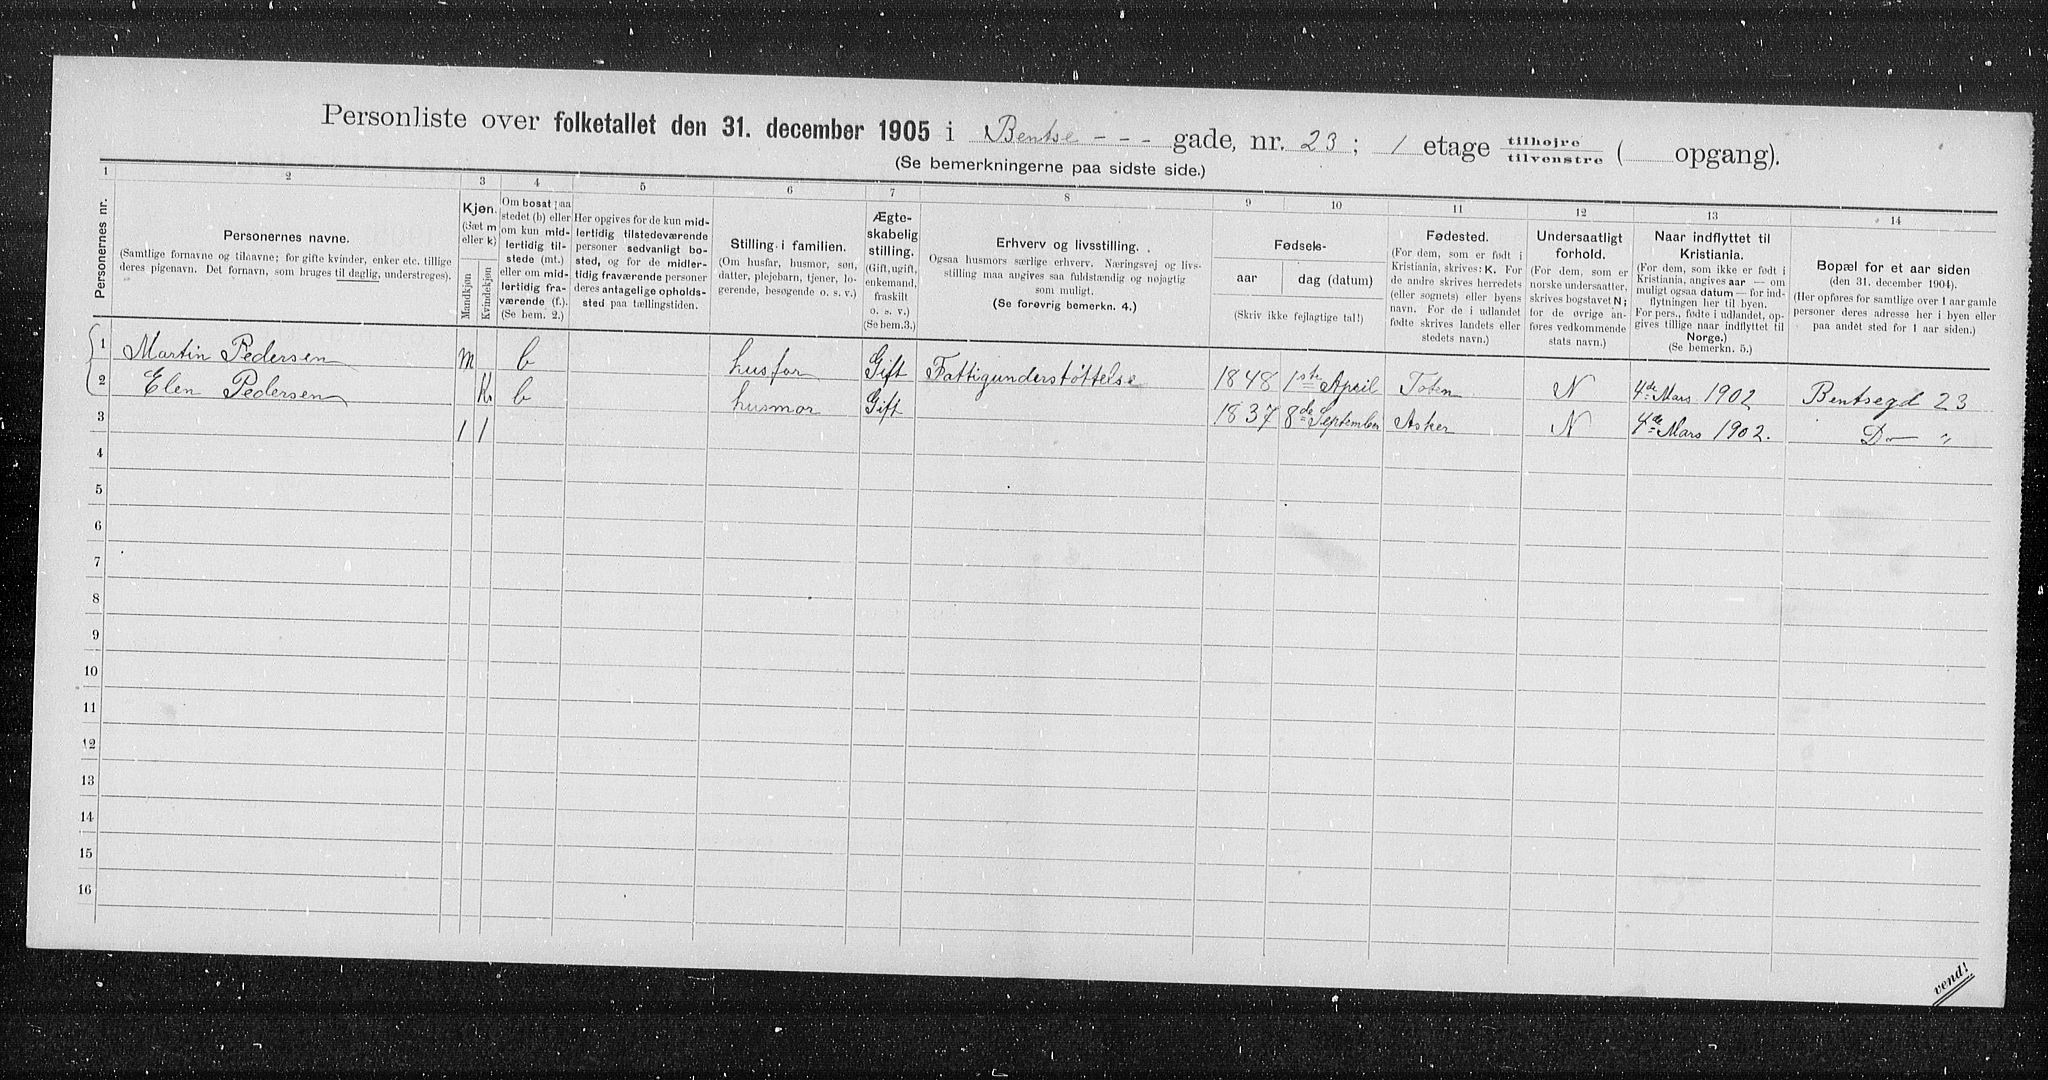 Personliste over folketallet den 31. december 1905 i Bentse - - - gade, nr. 23; 1 etage tilhøjre tilvenstre ( opgang).
(Se bemerkningerne paa sidste side.)
1 2 3 4 5 6 7 8 9 10 11 12 13 14
Personernes nr.
Personernes navne.
(Samtlige fornavne og tilnavne; for gifte kvinder, enker etc. tillige
deres pigenavn. Det fornavn, som bruges til daglig, understreges).
Kjøn.
(Sæt m
eller k)
Mandkjøn
Kvindekjøn
Om bosat paa
stedet (b) eller
om kun mid-
lertidig til-
stede (mt.)
eller om mid-
lertidig fra-
værende (f.).
(Se bem. 2.)
Her opgives for de kun mid-
lertidig tilstedeværende
personer sedvanligt bo-
sted, og for de midler-
tidig fraværende personer
deres antagelige opholds-
sted paa tællingstiden.
Stilling i familien.
(Om husfar, husmor, søn,
datter, plejebarn, tjener, lo-
gerende, besøgende o. s. v.)
Ægte-
skabelig
stilling.
(Gift, ugift,
enkemand,
fraskilt
o. s. v.)
(Se bem. 3.)
Erhverv og livsstilling.
Ogsaa husmors særlige erhverv. Næringsvej og livs-
stilling maa angives saa fuldstændig og nøjagtig
som muligt.
(Se forøvrig bemerkn. 4.)
Fødsels-
aar dag (datum)
(Skriv ikke fejlagtige tal!)
Fødested.
(For dem, som er født i
Kristiania, skrives: K. For
de andre skrives herredets
(eller sognets) eller byens
navn. For de i udlandet
fødte skrives landets eller
stedets navn.)
Undersaatligt
forhold.
(For dem, som er
norske undersaatter,
skrives bogstavet N;
for de øvrige an-
føres vedkommende
stats navn.)
Naar indflyttet til
Kristiania.
(For dem, som ikke er født i
Kristiania, angives aar — om
muligt ogsaa datum — for ind-
flytningen her til byen.
For pers., fødte i udlandet, op-
gives tillige naar indflyttet til
Norge.)
(Se bemerkn. 5.)
Bopæl for et aar siden
(den 31. december 1904).
(Her opføres for samtlige over 1 aar gamle
personer deres adresse her i byen eller
paa andet sted for 1 aar siden.)
1 Martin Pedersen m b husfar Gift Fattigunderstøttelse 1848 1ste April Toten N 4de Mars 1902 Bentsegd 23
2 Elen Pedersen K b husmor Gift 1837 8de September Asker N 4de Mars 1902. Do "
3 1 1
4
5
6
7
8
9
10
11
12
13
14
15
16
vend!